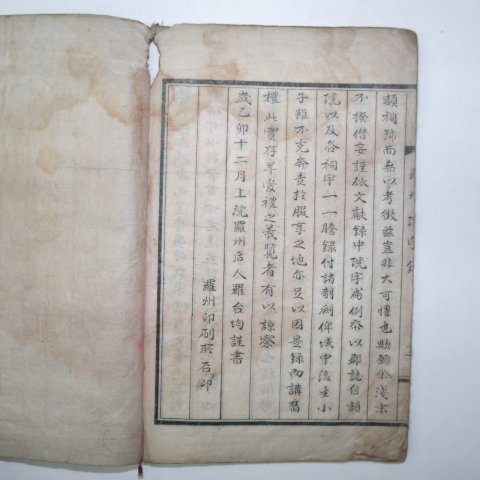 額祠號而無以考徵玆豈非大可懼也歟顧余淺末
不揆僭妄謹依文獻錄中院宇爲例忝以郡誌自額
院以及各祠宇一一謄錄付諸剞劂俾域中後生小
子雖不克奔走於服享之地亦足以因是錄而講舊
禮此實存羊愛禮之義覽者有以諒察
歲乙卯十二月上浣羅州后人羅台均謹書
羅州印刷所石印